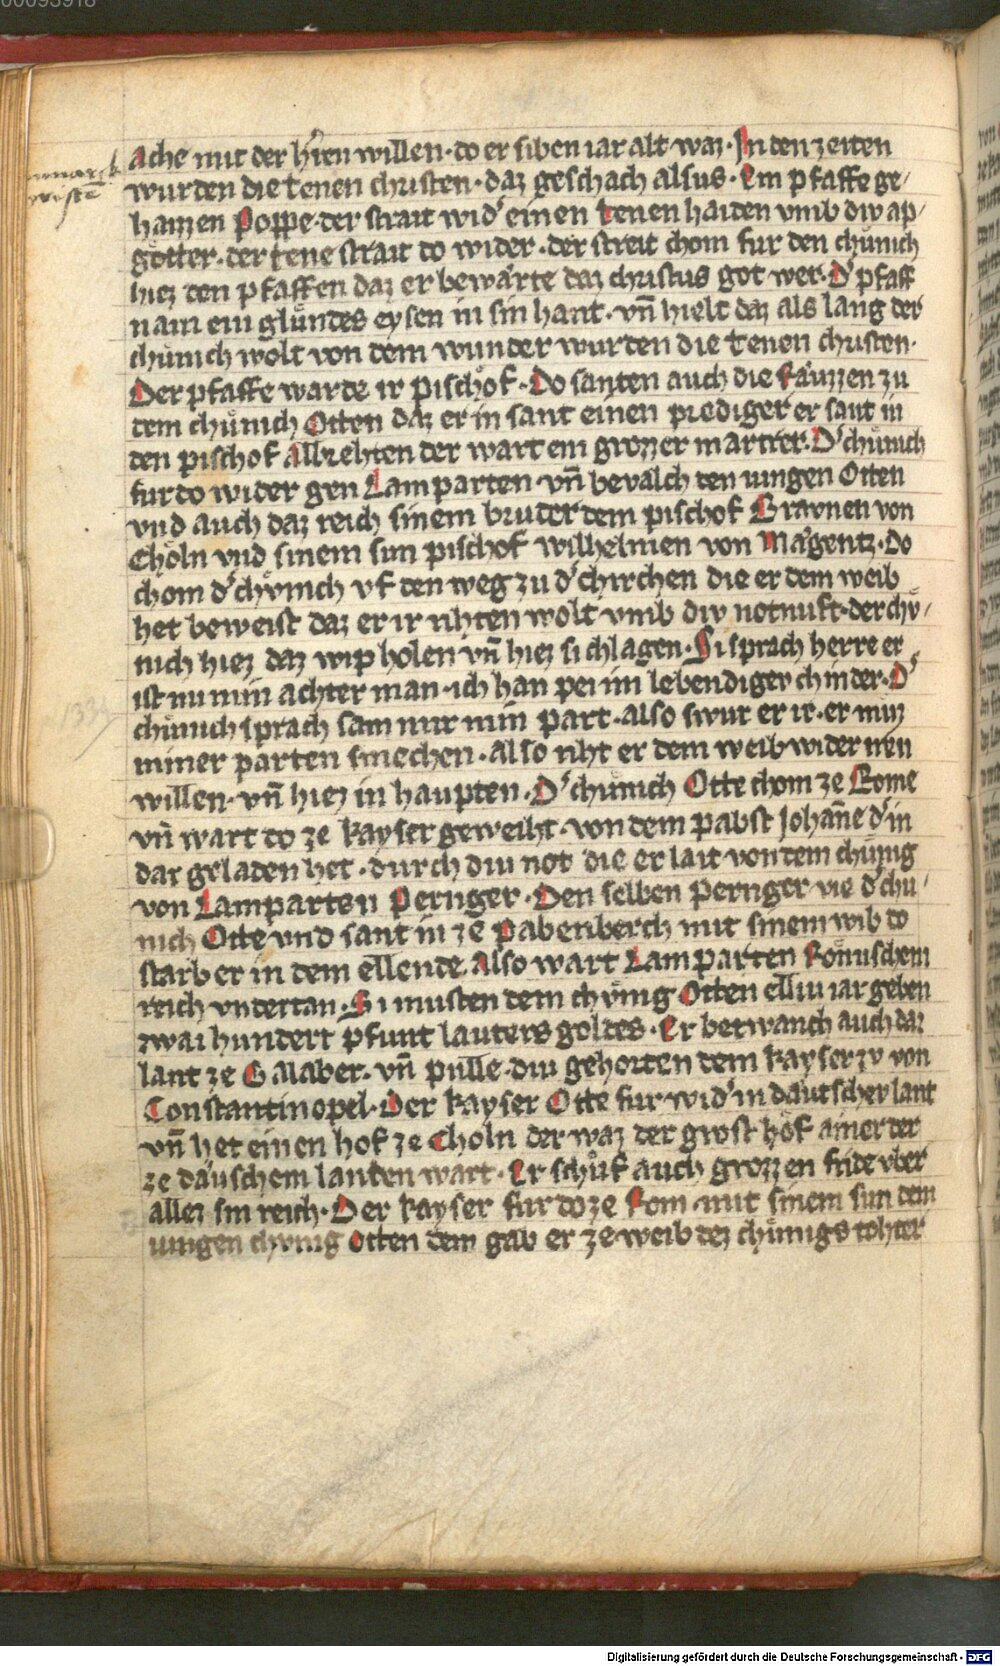 00093918
Ache mit der h̾ren willen · do er siben iar alt waz · In den zeiten
wurden die tenen christen · daz geschach alsus · Ein pfaffe ge/
haizzen Poppe · der strait wid' einen tenen haiden vmb diw ap/
götter · der tene strait do wider · der streit chom fur den chůnich
hiez den pfaffen daz er bewårte daz christus got wer · D' pfaff
nam ein glůndes eysen in sin hant · vn̄ hielt daz als lang der
chůnich wolt von dem wunder wurden die tenen christen ·
Der pfaffe warde ir pischof · Do santen auch die Råuzzen zu
dem chůnich Otten daz er in sant einen prediger er sant in
den pischof Albrehten der wart ein grozzer martrer · D' chůnich
fur do wider gen Lamparten · vn̄ bevalch den iungen Otten
vnd auch daz reich sinem bruder dem pischof Bravnen von
Chöln vnd sinem sun pischof wilhelmen von Mågentz · Do
chom d' chvnich vf den weg zu d' chirchen die er dem weib
het beweist daz er ir rihten wolt vmb diw notnuft · der chv̊/
nich hiez daz wip holen vn̄ hiez si chlagen · Si sprach herre er
ist nu min achter man · ich han pei im lebendiger chinder · D'
chůnich sprach sam mir min part · also swur er ir · er muz
miner parten smechen · Also riht er dem weib wider iren
willen · vn̄ hiez in haupten · D' chůnich Otte chom ze Rome
vn̄ wart do ze kayser geweiht · von dem pabst Johan̄e d' in
dar geladen het · durch diu not die er lait von dem chunig
von Lamparten Pernger · Den selben Pernger vie d' chu/
nich Otte vnd sant in ze Pabenberch mit sinem wib do
starb er in dem ellende Also wart Lamparten Römischem
reich vndertan · Si musten dem chvnig Otten elliu iar geben
zwai hundert pfunt lauters goldes · Er betwanch auch daz
lant ze Galaber · vn̄ pülle · diu gehorten dem kayser zv von
Constantinopel · Der kayser Otte fur wid' in dautschev lant
vn̄ het einen hof ze Choln der waz der grost hof ainer der
ze dauschem landen wart · Er schůf auch grozzen fride vber
allez sin reich · Der kayser fur do ze Rom · mit sinem sun dem
iungen chvnig Otten dem gab er ze weib dez chůnigs tohter
Digitalisierung gefördert durch die Deutsche Forschungsgemeinschaft - DFG